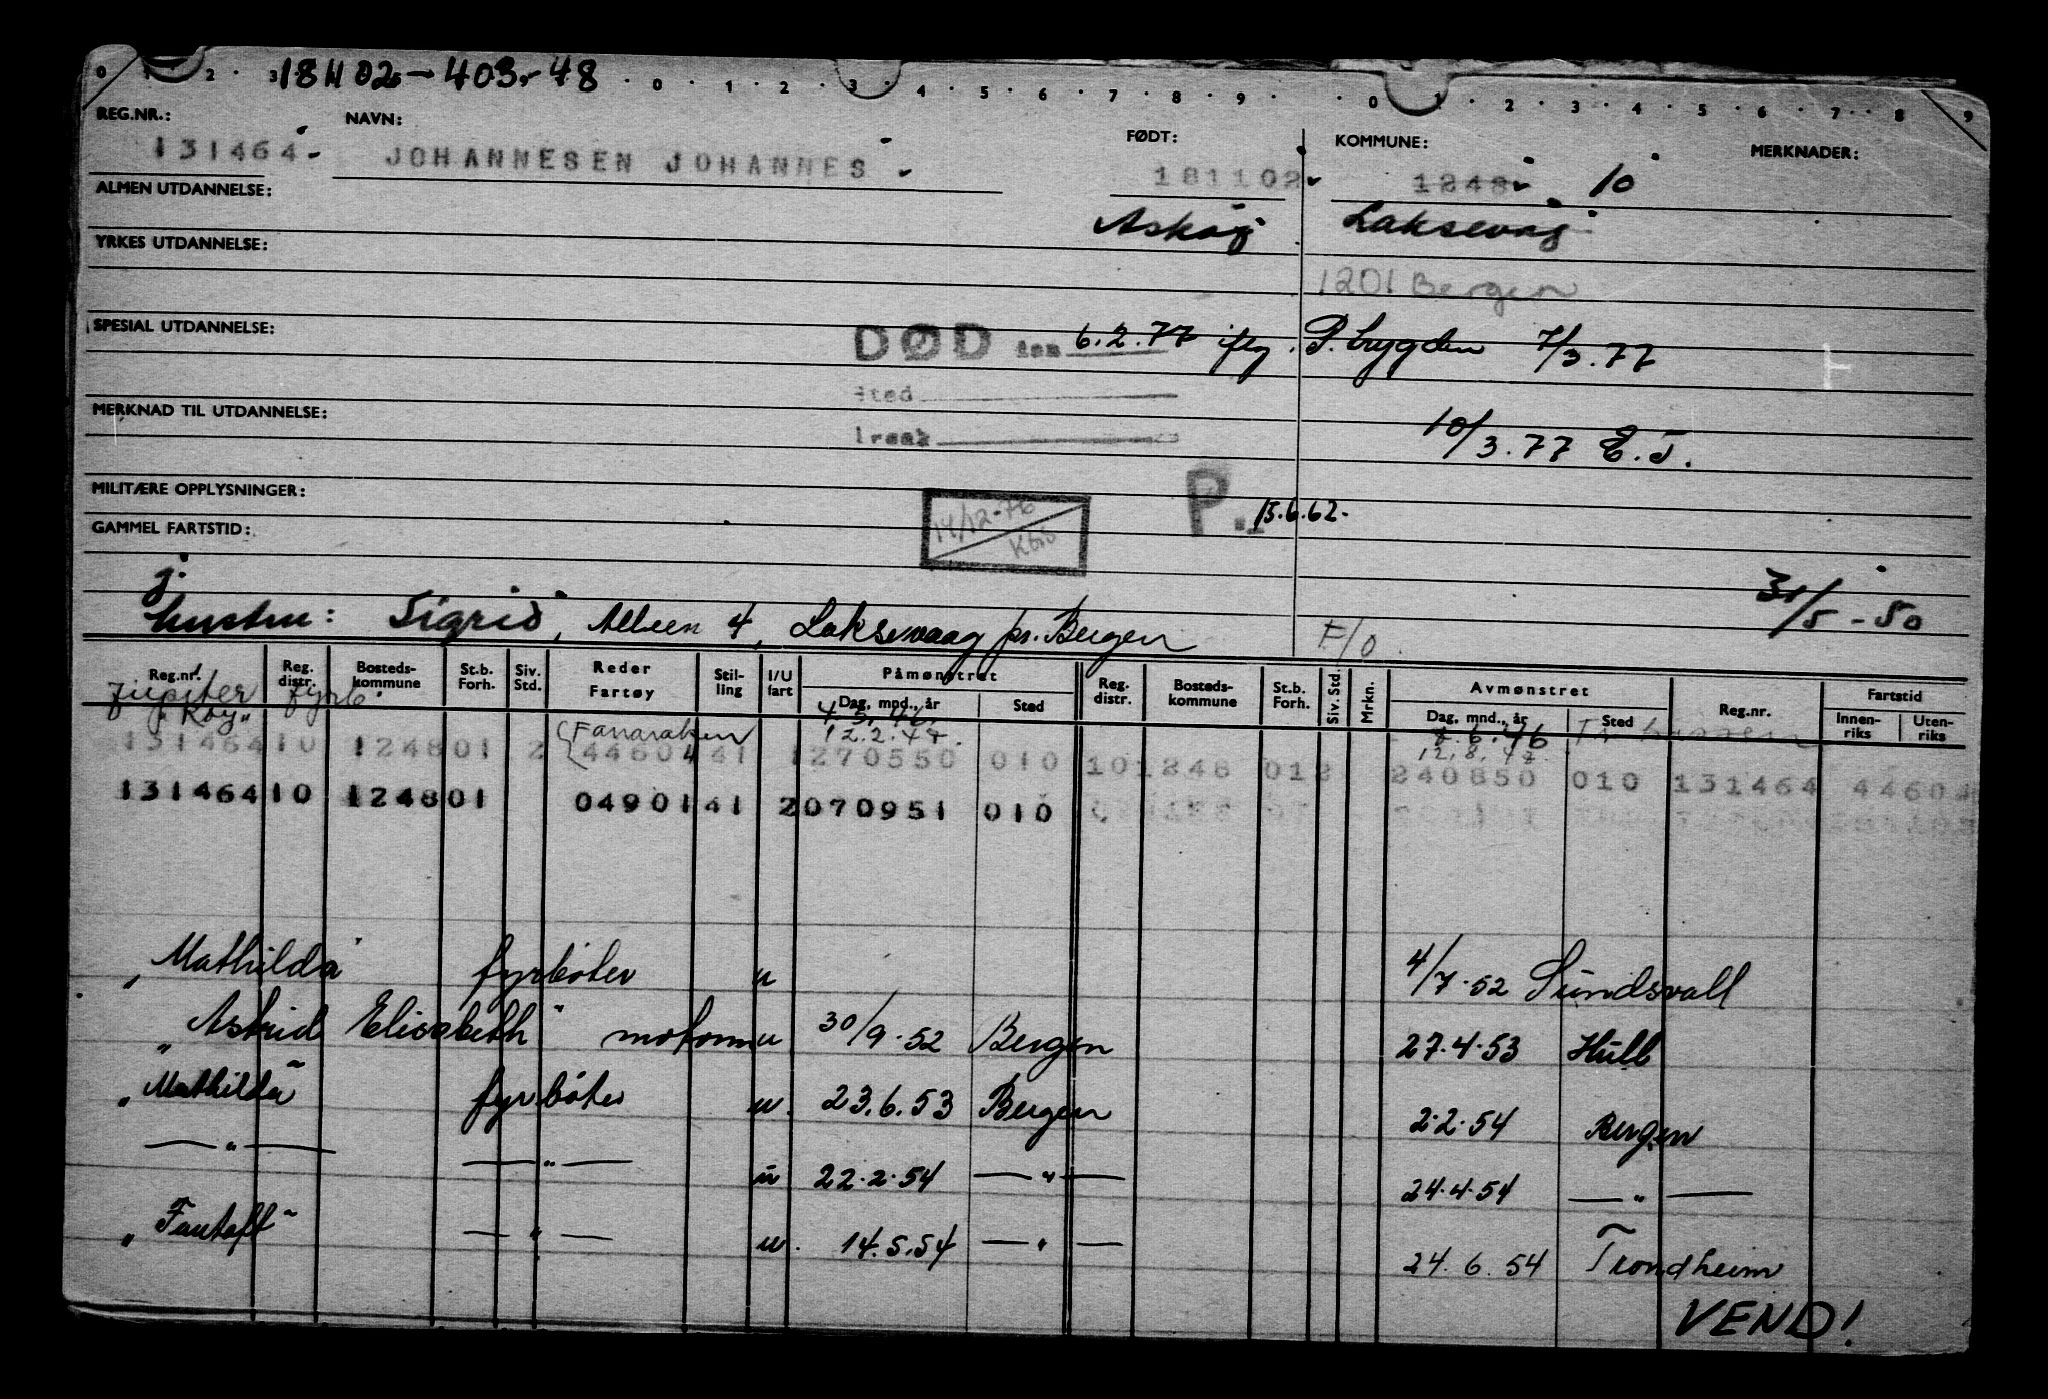 18 11 02 - 403.-48
REG.NR.: NAVN: FØDT: KOMMUNE: MERKNADER:
131464 JOHANNESEN JOHANNES 181102 1248 10
ALMEN UTDANNELSE:
Askøy Laksevåg
YRKES UTDANNELSE:
1201 Bergen
SPESIAL UTDANNELSE:
DØD den 6.2.77 iflg. P. 7/3.77
Sted
MERKNAD TIL UTDANNELSE:
Årsak
10/3.77 E.J.
MILITÆRE OPPLYSNINGER:
P. 15.6.62.
14/12-76
GAMMEL FARTSTID:
31/5-50
g.
hustru: Sigrid, Alleen 4, Laksevaag pr. Bergen
F/O
Reg.nr. Reg. distr. Bosteds- kommune St.b. Forh. Siv. Std. Reder Fartøy Stil- ling I/U fart Påmønstret Dag, mnd., år Sted Reg. distr. Bosteds- kommune St.b. Forh. Siv. Std. Mrkn. Avmønstret Dag, mnd., år Sted Reg.nr. Fartstid Innen- riks Uten- riks
Jupiter fyrb. 4.5.46. 7.6.46
Fanaraken 12.2.48. 12.8.48
131464 10 1248 01 2 44604 41 1 270550 010 10 1248 01 2 240850 010 131464 44604
131464 10 1248 01 04901 41 2 070951 010
"Mathilda" fyrbøter u 4/7.52 Sundsvall
"Astrid Elisabeth" motorm u 30/9.52 Bergen 27.4.53 Hull
"Mathilda" fyrbøter u. 23.6.53 Bergen 2.2.54 Bergen
—"— —"— u 22.2.54 —"— 24.4.54 —"—
"Fantoft" —"— u. 14.5.54 —"— 24.6.54 Trondheim
VEND!